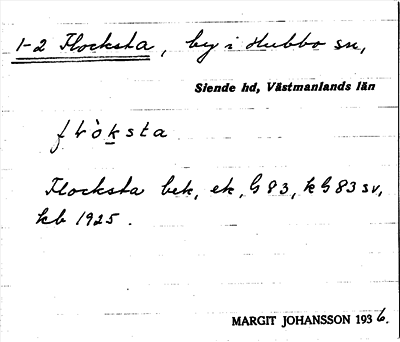 1-2 Flocksta, by i Hubbo sn,
Siende hd, Västmanlands län
flòksta
Flocksta bek, ek, G 83, k G 83 sv,
kb 1925.
MARGIT JOHANSSON 1936.